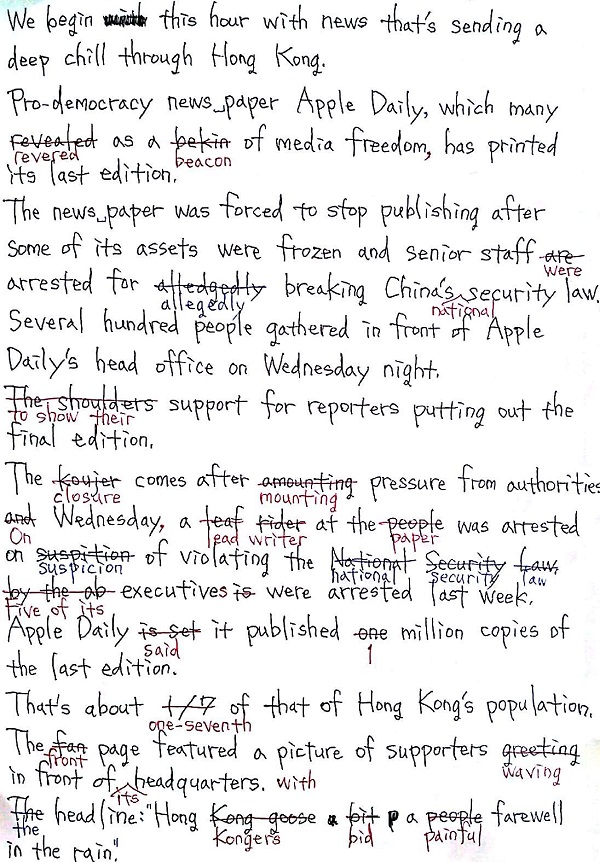 We begin with this hour with news that's sending a
deep chill through Hong Kong.
Pro-democracy news paper Apple Daily, which many
revealed as a bekin of media freedom, has printed
revered beacon
its last edition.
The news paper was forced to stop publishing after
some of its assets were frozen and senior staff are
were
arrested for alledgedly breaking China's security law.
allegedly national
Several hundred people gathered in front of Apple
Daily's head office on Wednesday night.
The shoulders support for reporters putting out the
to show their
final edition.
The koujer comes after amounting pressure from authorities
closure mounting
and Wednesday, a leaf rider at the people was arrested
On lead writer paper
on suspition of violating the National Security Law,
suspicion national security law
by the ab executives is were arrested last week.
five of its
Apple Daily is set it published one million copies of
said 1
the last edition.
That's about 1/7 of that of Hong Kong's population.
one-seventh
The fan page featured a picture of supporters greeting
front waving
in front of headquarters. with
its
The headline: "Hong Kong goose a bit p a people farewell
the Kongers bid painful
in the rain."